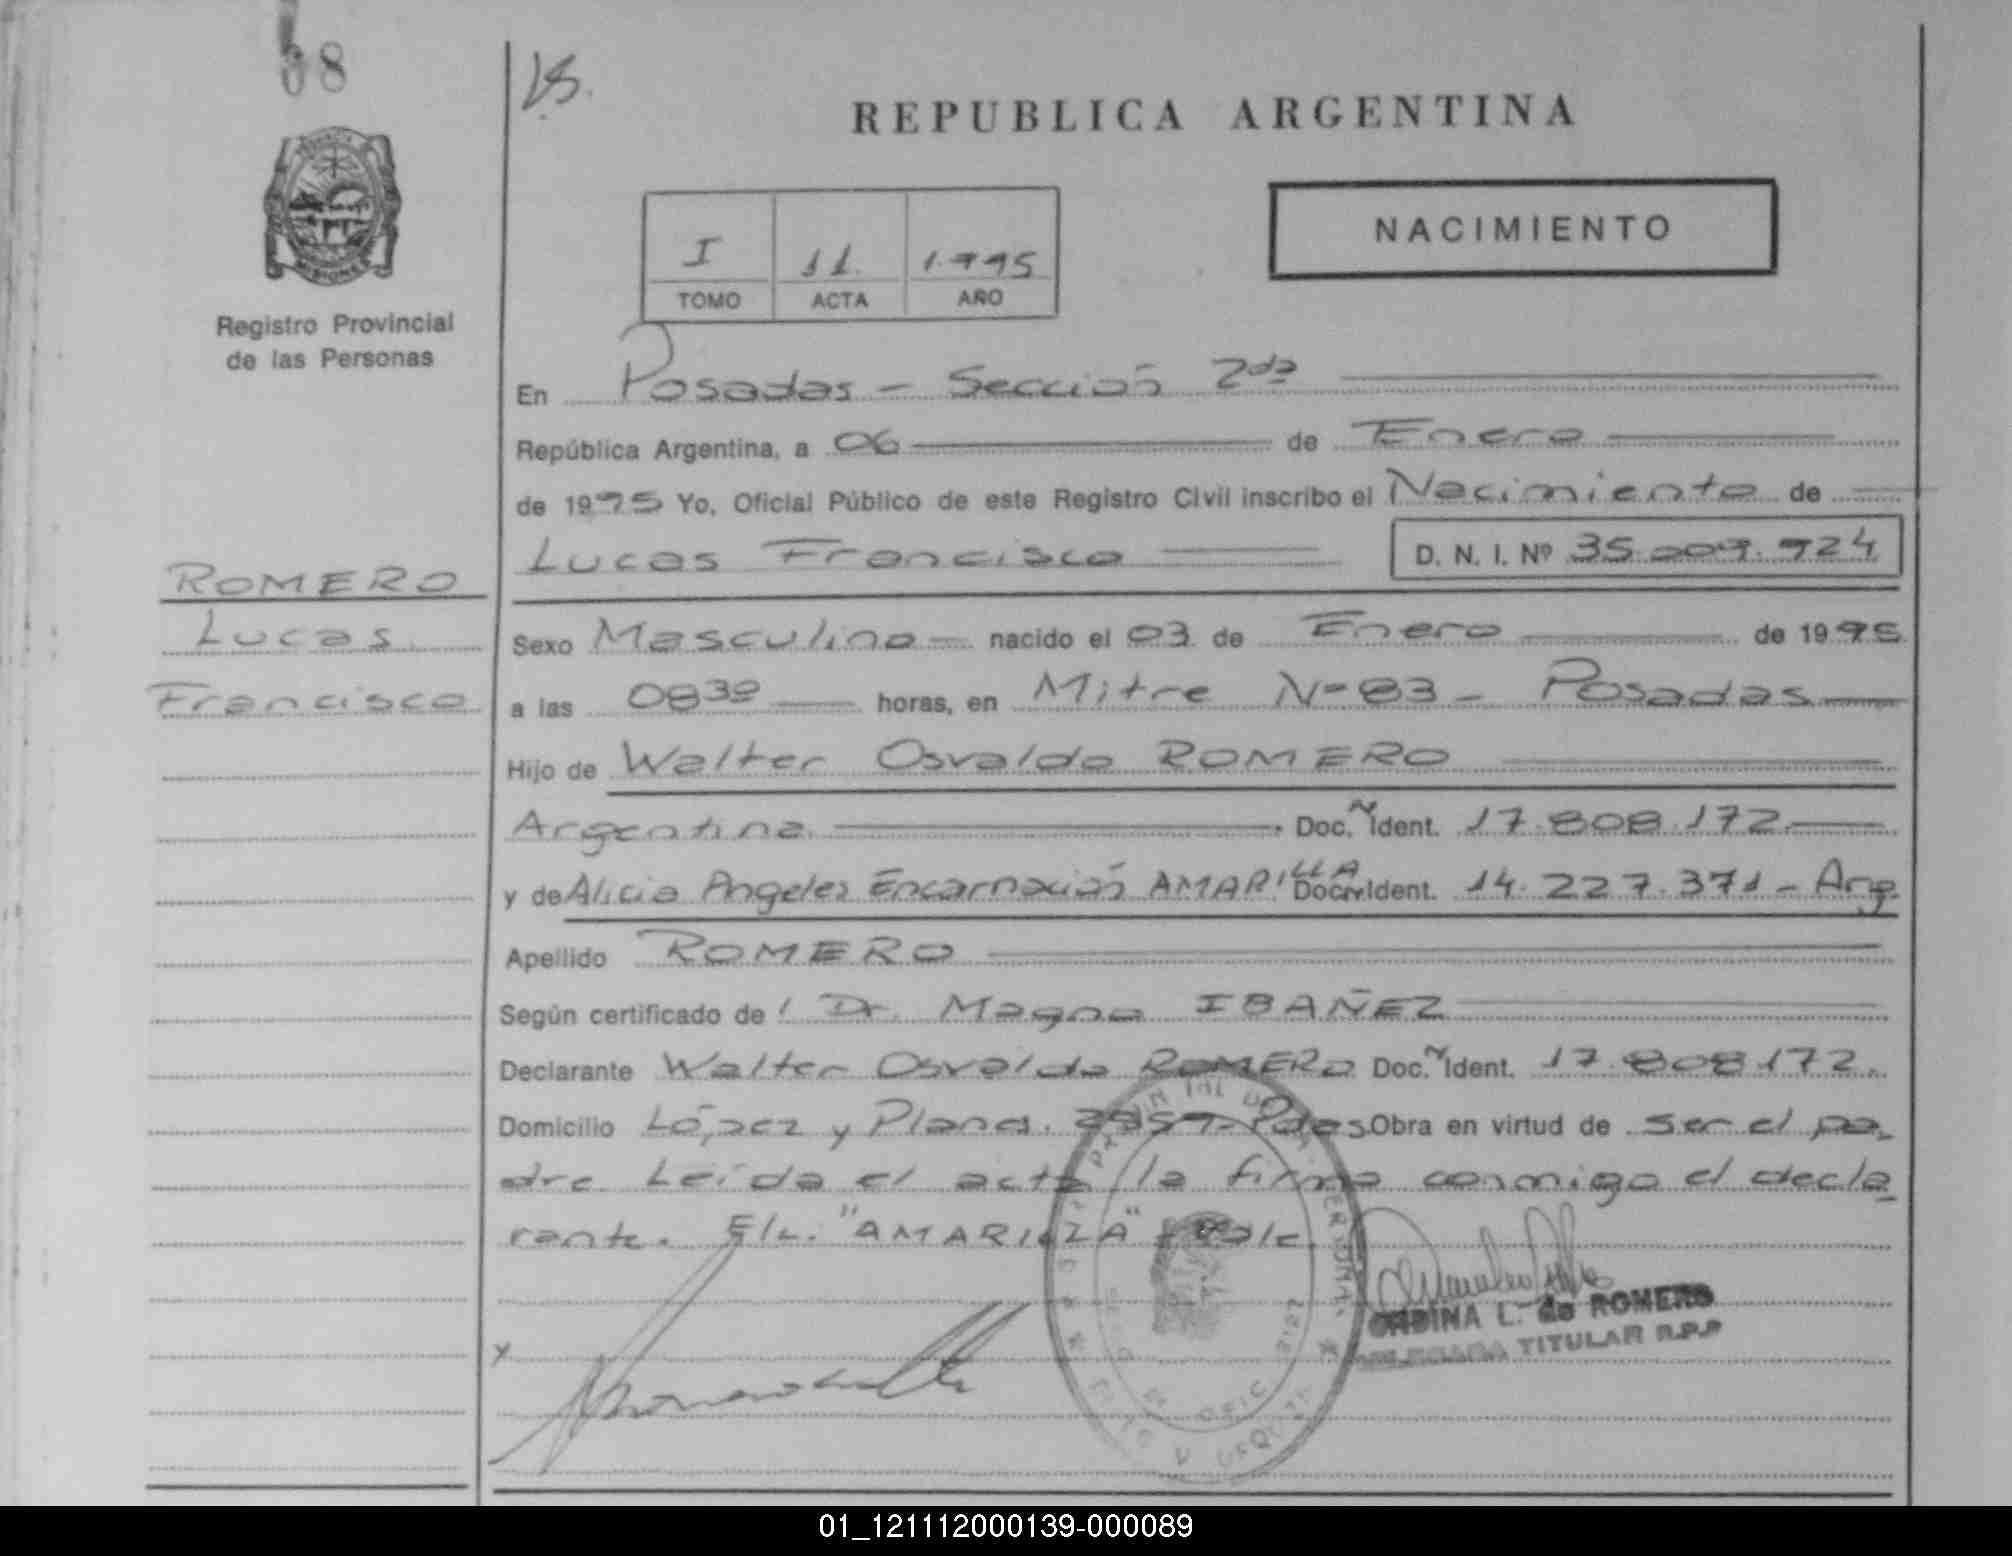 68
REPUBLICA ARGENTINA
NACIMIENTO
I 11. 1.995
TOMO ACTA AÑO
MISIONES
Registro Provincial
de las Personas
En Posadas - Sección 2da
República Argentina, a 06 de Enero
de 1995 Yo, Oficial Público de este Registro Civil inscribo el Nacimiento de
Lucas Francisco D. N. I. Nº 35.009.924
ROMERO
Lucas
Francisco
Sexo Masculino nacido el 03 de Enero de 1995
a las 08 30 horas, en Mitre Nº 83 - Posadas
Hijo de Walter Osvaldo ROMERO
Argentina. Doc. N Ident. 17.808.172
y de Alicia Angeles Encarnación AMARILLA Doc. N Ident. 14.227.371 - Arg.
Apellido ROMERO
Según certificado de Dr. Magno IBAÑEZ
Declarante Walter Osvaldo ROMERO Doc. N Ident. 17.808.172.
Domicilio López y Planes. 2957- Pdas Obra en virtud de ser el pa-
dre. Leída el acta la firma conmigo el decla
rante. E/L. "AMARILLA" Vale
L. de ROMERO
TITULAR R.P.P
01_121112000139-000089